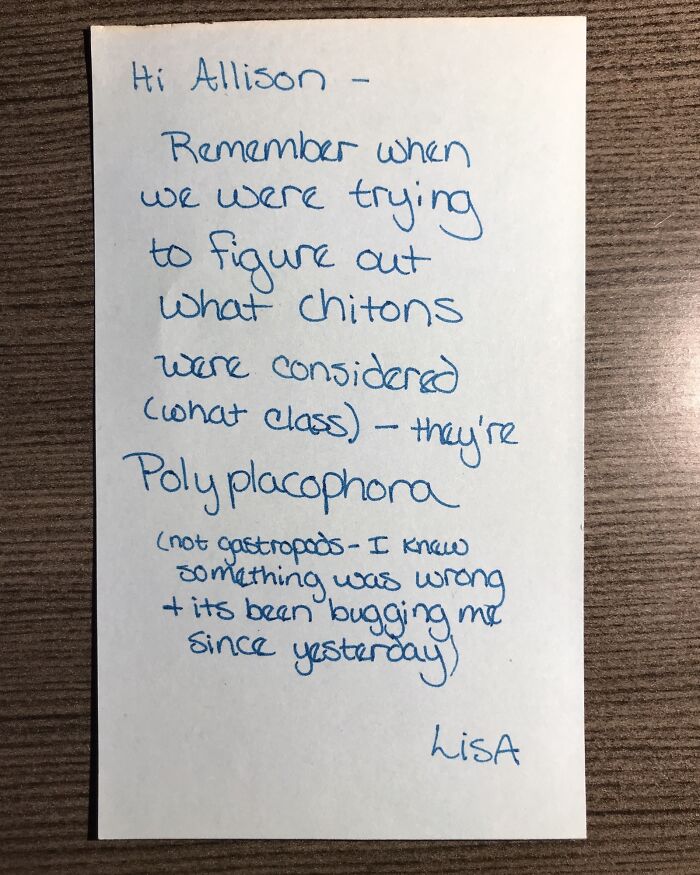 Hi Allison -
Remember when
we were trying
to figure out
what chitons
were considered
(what class) - they're
Polyplacophora
(not gastropods - I knew
something was wrong
+ its been bugging me
since yesterday)
LisA